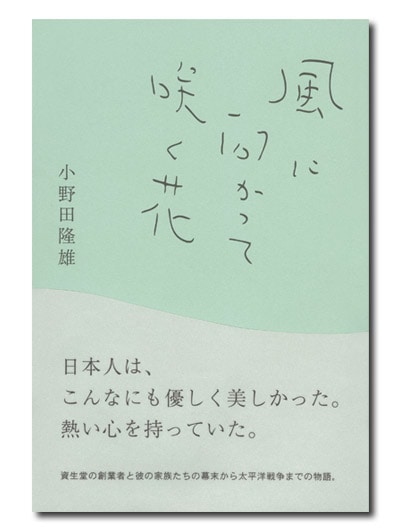 風に
向かって
咲く花
小野田隆雄
日本人は、
こんなにも優しく美しかった。
熱い心を持っていた。
資生堂の創業者と彼の家族たちの幕末から太平洋戦争までの物語。